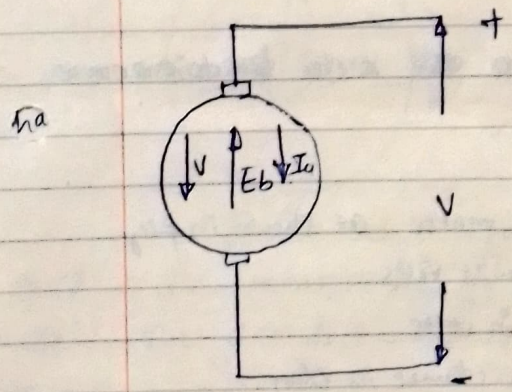 +
na
V Eb Ia
V
-